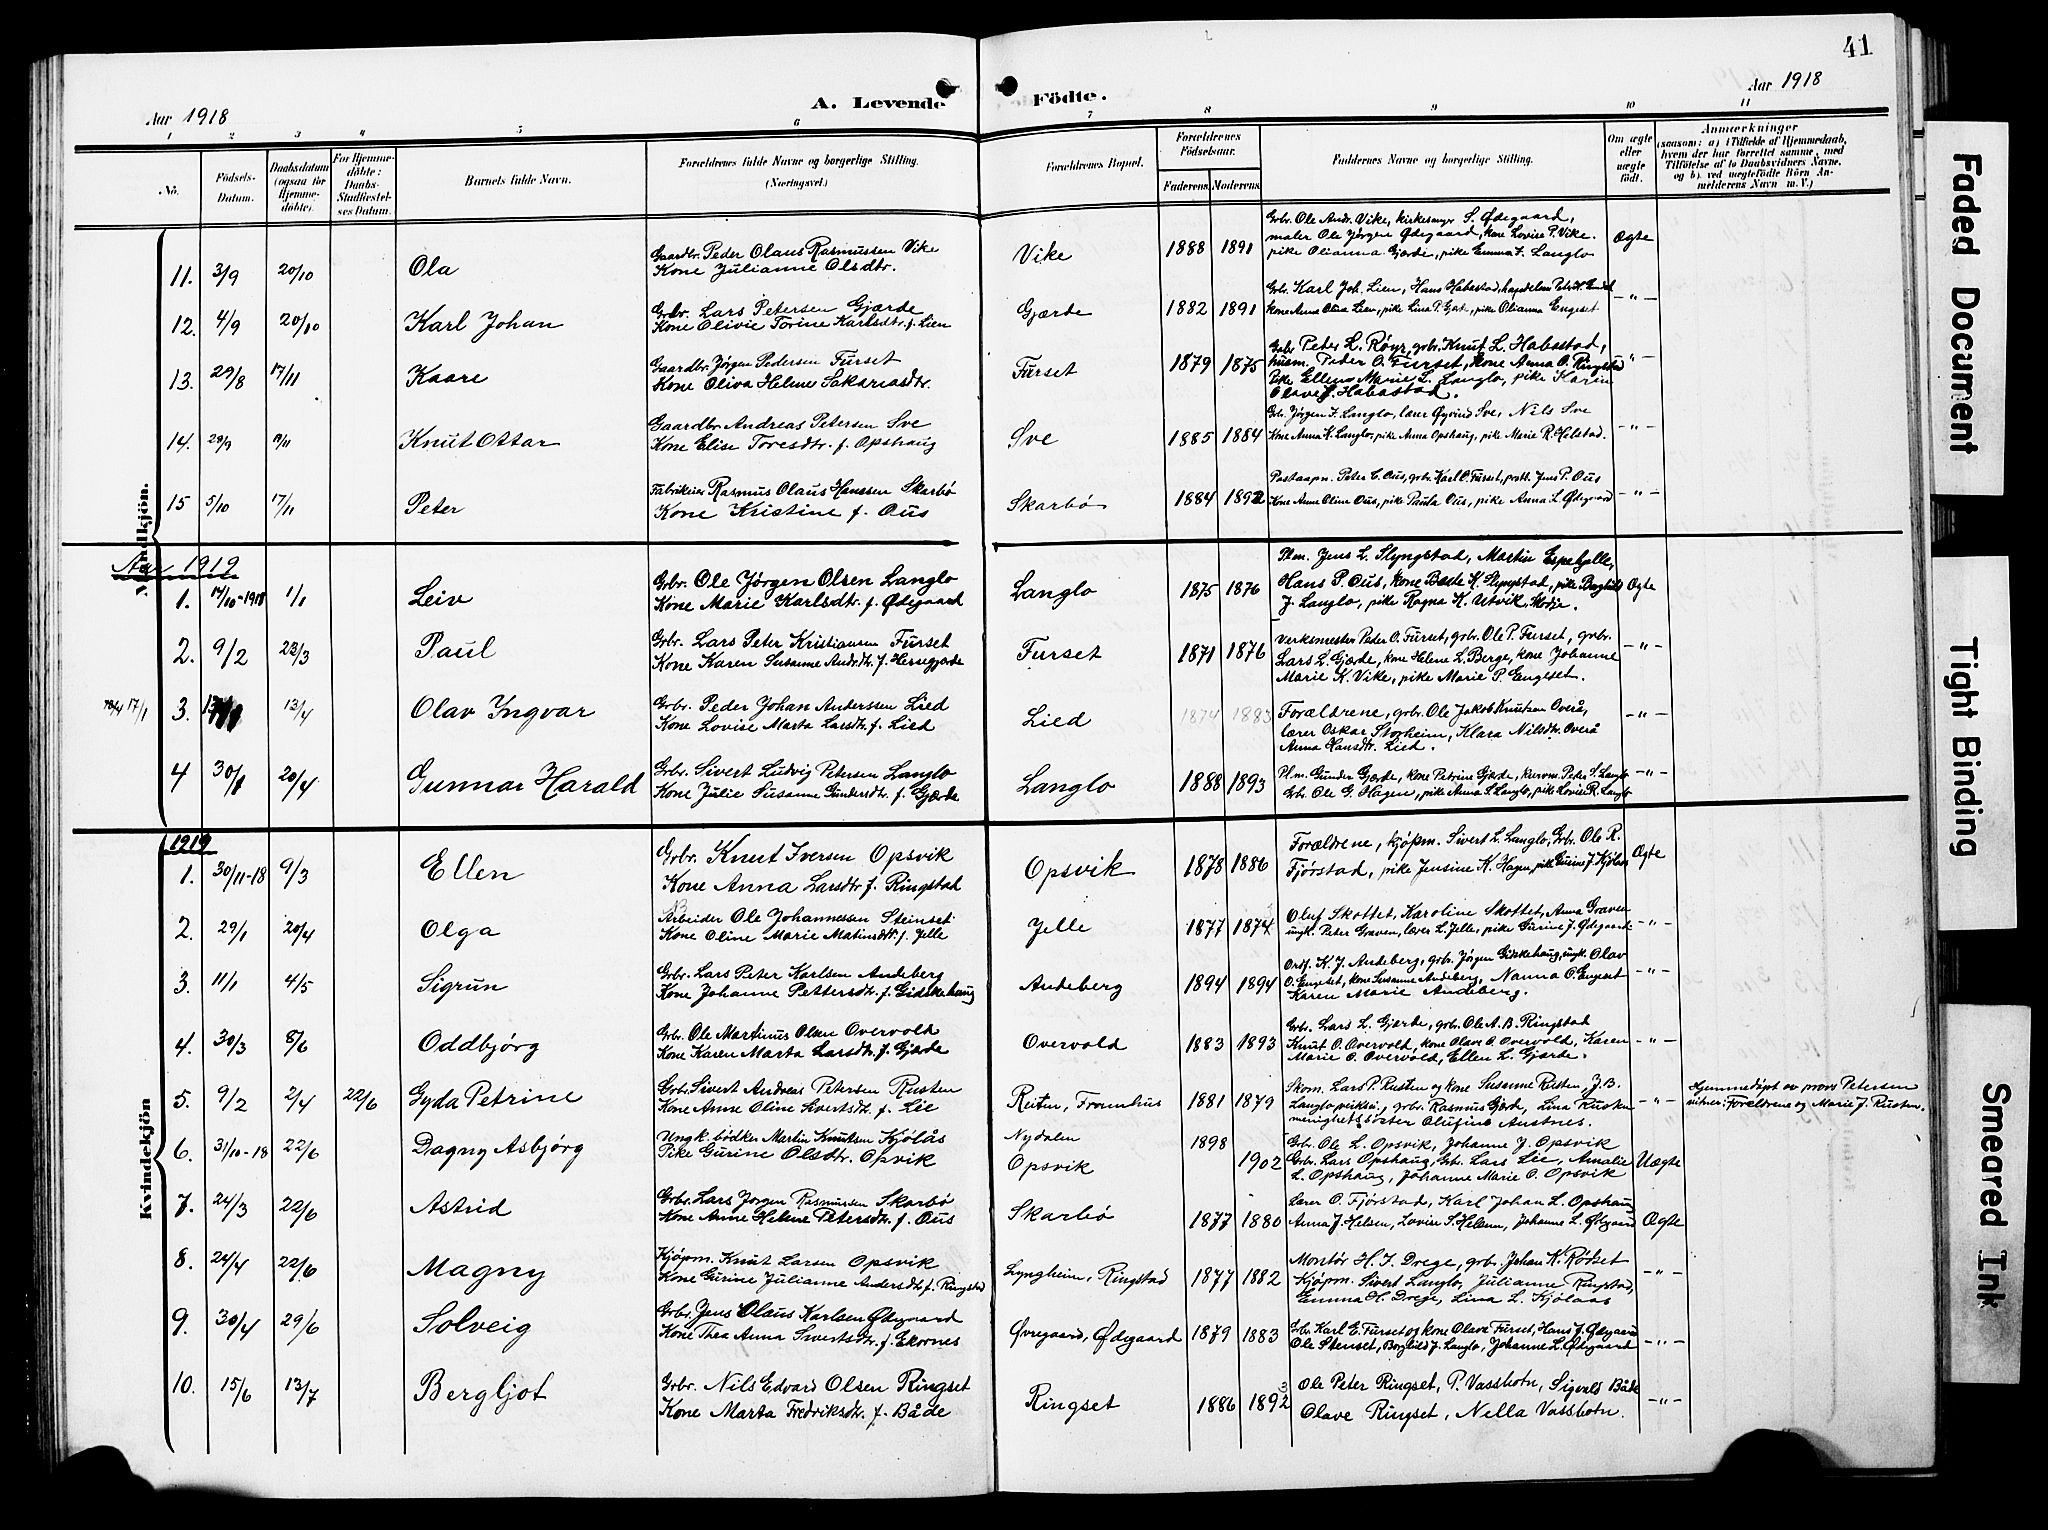 41
Aar 1918
A. Levende Födte.
Aar 1918
1 2 3 4 5 6 7 8 9 10 11
No. Födsels-Datum. Daabsdatum (ogsaa for Hjemme-döbte). For Hjemme-döbte: Daabs-Stadfæstel-ses Datum. Barnets fulde Navn. Forældrenes fulde Navne og borgerlige Stilling. (Næringsvei.) Forældrenes Bopæl. Forældrenes Födselsaar. Faderens Moderens Faddernes Navne og borgerlige Stilling. Om ægte eller uægte födt. Anmærkninger
(saasom: a) i Tilfælde af Hjemmedaab, hvem der har forrettet samme, med Tilföielse af to Daabsvidners Navne. og b) ved uægtefödte Börn An-melderens Navn m. V.)
Mandkjön.
11. 3/9 20/10 Ola Gaardbr. Peder Olaus Rasmussen Vike
Kone Julianne Olsdtr.
Vike 1888 1891
Grbr. Ole Andr. Vike, kirkesanger S. Ødegaard,
maler Ole Jörgen Ødegaard, kone Lovise P. Vike.
pike Olianna Gjærde, pike Emma F. Langlo
Ægte
12. 4/9 20/10 Karl Johan Grbr. Lars Petersen Gjærde
Kone Olivie Torine Karlsdtr. f. Lien
Gjærde 1882 1891
Grbr. Karl Joh. Lien, Hans Habostad,
Kone Anna Olina Lien, pike Lina P. Gjærde, pike Olianna Engeset
-"-
13. 29/8 17/11 Kaare Gaardbr. Jörgen Pedersen Furset
Kone Oliva Heline Sakariasdtr.
Furset 1879 1875
Grbr Peter L. Röyr, grbr. Knut L. Habostad,
husm. Peder O. Furset, Kone Anna O. Ringstad
Pike Ellen Marie L. Langlo, pike Karin
Olave J. Habostad.
-"-
14. 29/9 17/11 Knut Ottar Gaardbr Andreas Petersen Sve
Kone Elise Toresdtr. f. Opshaug
Sve 1885 1884
Grbr. Jörgen F. Langlo, lærer Øyvind Sve, Nils Sve
Kone Anna K. Langlo, pike Anna Opshaug, pike Marie R. Helstad.
-"-
15 5/10 17/11 Peter Fabrikeier Rasmus Olaus Hanssen Skarbö
Kone Kristine f. Ous
Skarbö 1884 1892
Postaapn. Peter C. Ous, grbr. Karl O. Furset, Jens P. Ous
Kone Anne Oline Ous, pike Paula Ous, pike Anna L. Ødegaard
-"-
Aar 1919
1. 17/10-1918 1/1 Leiv Grbr. Ole Jörgen Olsen Langlo
Kone Marie Karlsdtr. f. Ødegaard
Langlo 1875 1876
Plm. Jens L. Slyngstad, Martin Espehjelle,
Hans P. Ous, kone Beate K. Slyngstad, pike Borghild
J. Langlo, pike Ragna K. Utvik, Skodje.
Ægte
2. 9/2 23/3 Paul Grbr. Lars Peter Kristiansen Furset
Kone Karen Susanne Andrdtr. f. Hessegjærde
Furset 1871 1876
Verksmester Peder O. Furset, grbr. Ole P. Furset, grbr.
Lars L. Gjærde, kone Helene L. Berge, kone Johanne
Marie K. Vike, pike Marie P. Engeset.
-"-
17/1 3. 13/4 Olav Ingvar Grbr. Peder Johan Anderssen Lied
Kone Lovise Marta Larsdtr. f. Lied
Lied 1874 1883
Forældrene, grbr. Ole Jakob Knutsen Overå,
lærer Oskar Storheim, Klara Nilsdtr. Overå
Anna Hansdtr. Lied.
-"-
4 30/1 20/4 Gunnar Harald Grbr. Sivert Ludvig Petersen Langlo
Kone Julie Susanne Gundersdtr. f. Gjærde
Langlo 1888 1893
Plm. Gunder Gjærde, kone Petrine Gjærde, kurvm. Peter S. Langlo
Grbr. Ole G. Hagen, pike Anna S. Langlo, pike Lovise R. Langlo
-"-
1919
Kvindekjön
1. 30/11-18 9/3 Ellen Grbr. Knut Iversen Opsvik
Kone Anna Larsdtr f. Ringstad
Opsvik 1878 1886
Forældrene, kjöpm. Sivert L. Langlo, Grbr. Ole R.
Fjörstad, pike Jensine K. Hagen, pike Gurine J. Kjölaas
Ægte
2. 29/1 20/4 Olga Arbeider Ole Johannessen Steinset
Kone Oline Marie Matiasdtr. f. Jelle
Jelle 1877 1874
Oluf Skottet, Karoline Skottet, Anna Graven
ungk. Peter Graven, lærer L. Jelle, pike Gurine J. Ødegaard
-"-
3. 11/1 4/5 Sigrun Grbr. Lars Peter Karlsen Andeberg
Kone Johanne Pettersdtr. f. Gidskehaug
Andeberg 1894 1894
Ordf. K. J. Andeberg, grbr. Jörgen Gidskehaug, ungk. Olav
O. Engeset, kone Susanne Andeberg, Nanna O. Engeset
Karen Marie Andeberg.
-"-
4. 30/3 8/6 Oddbjörg Grbr. Ole Martinus Olsen Overvold
Kone Karen Marta Larsdtr. f. Gjærde
Overvold 1883 1893
Grbr. Lars L. Gjærde, grbr. Ole A. B. Ringstad
Knut O. Overvold, kone Olave O. Overvold, Karen
Marie O. Overvold, Ellen L. Gjærde.
-"-
5. 9/2 2/4 22/6 Gyda Petrine Grbr. Sivert Andreas Petersen Rusten
Kone Anne Oline Sivertsdtr. f. Lie
Reiten, Framhus 1881 1879
Skom. Lars P. Rusten og kone Susanne Rusten, J. B.
Langlo, grbr. Rasmus Gjærde, Lina Rusten
menighetssöster Olufine Austnes.
-"-
Hjemmedöpt av provs Petersen
vitner: Foreldrene og Marie J. Rusten.
6. 31/10-18 22/6 Dagny Asbjörg Ungk. bödker Martin Knutsen Kjölås
Pike Gurine Olsdtr. Opvik
Nydalen 1898
Opsvik 1902
Grbr. Ole L. Opsvik, Johanne J. Opsvik
Grbr. Lars Opshaug, Grb. Lars Lie, Amalie
L. Opshaug, Johanne Marie O. Opsvik
Uægte
7. 24/3 22/6 Astrid Grbr. Lars Jörgen Rasmussen Skarbö
Kone Anne Heline Petersdtr. f. Ous
Skarbö 1877 1880
Lærer O. Fjörstad, Karl Johan L. Opshaug
Anna J. Helsen, Lovise S. Helsem, Johanne L. Ødegaard
Ægte
8. 24/4 22/6 Magny Kjöpm. Knut Larsen Opsvik
Kone Gurine Julianne Andersdtr. f. Ringstad
Lyngheim, Ringstad 1877 1882
Montör H. J. Drege, grb. Johan K. Rödset
Kjöpm. Sivert Langlo, Julianne Ringstad,
Emma H. Drege, Lina L. Kjölaas
-"-
9. 30/4 29/6 Solveig Grbr. Jens Olaus Karlsen Ødegaard
Kone Thea Anna Sivertsdtr. f. Ekornes
Øvregaard, Ødegaard 1879 1883
Grbr. Karl E. Furset og kone Olave Furset, Hans J. Ødegaard
Ole Stenset, Borghild J. Langlo, Johanne L. Ødegaard
-"-
10. 15/6 13/7 Bergljot Grbr. Nils Edvard Olsen Ringset
Kone Marta Fredriksdtr. f. Både
Ringset 1886 1892
3
Ole Peter Ringset, P. Vassbotn, Sigvald Både
Olave Ringset, Nella Vassbotn.
-"-
Faded Document
Tight Binding
Smeared Ink